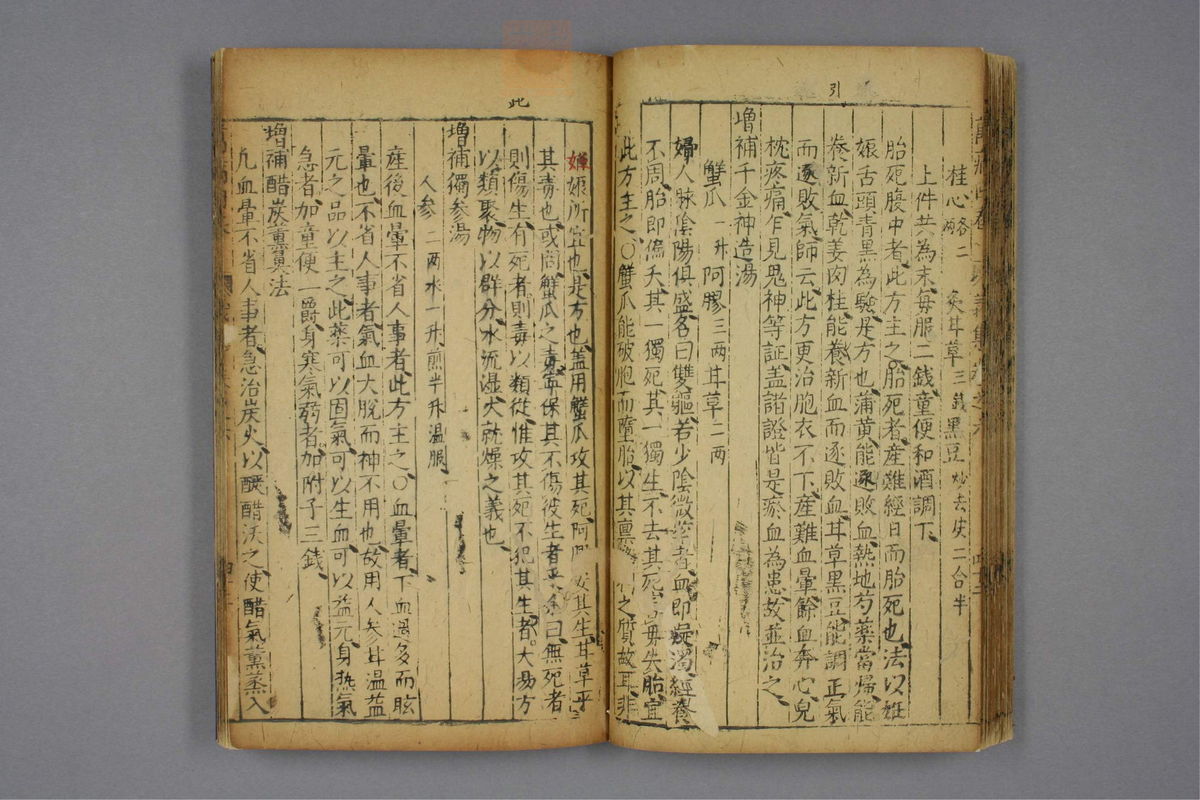 引
桂心各二兩 炙甘草三錢 黑豆炒去皮二合半
上件共為末每服二錢童便和酒調下
胎死腹中者此方主之○胎死者產難經日而胎死也法以姙
娠舌頭青黑為驗是方也蒲黃能逐敗血熱地芍藥當歸能
養新血乾姜肉桂能養新血而逐敗血甘草黑豆能調正氣
而逐敗氣師云此方更治胞衣不下產難血暈餘血奔心兒
枕疼痛乍見鬼神等証蓋諸證皆是瘀血為患故並治之
增補千金神造湯
蟹爪一升 阿膠三兩 甘草二兩
婦人脉陰陽俱盛名曰雙軀若少陰微緊者血即凝濁經養
不周胎即偏夭其一獨死其一獨生不去其死害母失胎宜
此方主之○蟹爪能破胞而墮胎以其禀 之質故耳非
此
姙娠所宜也是方也蓋用蟹爪攻其死阿 安其生甘草平
其毒也或問蟹爪之毒寧保其不傷彼生者乎余曰無死者
則傷生有死者則毒以類從惟攻其死不犯其生者大易方
以類聚物以群分水流濕火就燥之義也
增補獨參湯
人參二兩水一升煎半升溫服
產後血暈不省人事者此方主之○血暈者下血過多而眩
暈也不省人事者氣血大脫而神不用也故用人參甘溫益
元之品以主之此藥可以固氣可以生血可以益元身熱氣
急者加童便一爵身寒氣弱者加附子三錢
增補醋炭薰法
凡血暈不省人事者急治炭火以醲醋沃之使醋氣薰蒸入